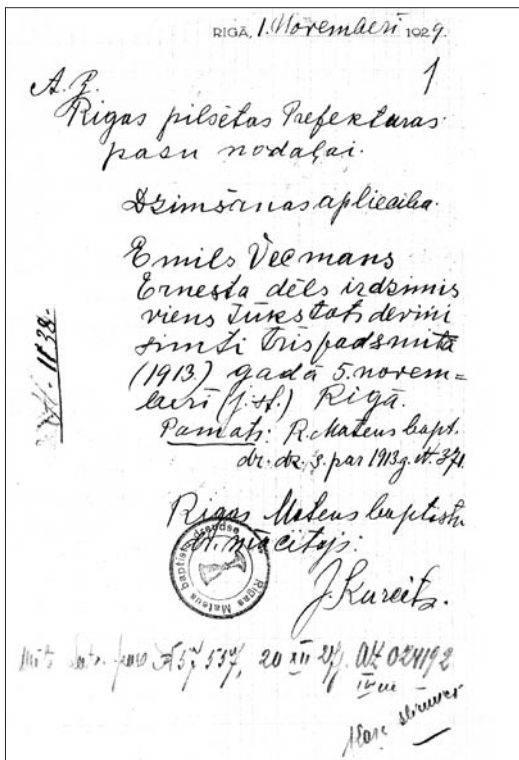 RIGĀ, 1. Novemberī 1929.
1
A. G.
Rigas pilsētas Prefekturas
pasu nodaļai.
Dzimšanas apliecība.
Emils Vecmans
Ernesta dēls irdzimis
viens tūkstots deviņi
simti trīspadsmitā
(1913.) gadā 5. novem=
berī (j. st.) Rigā.
Pamats: R. Mateus bapt.
dr. dz. s. par 1913 g. № 371.
Rigas Mateus baptistu
dr. mācitajs:
Rigas Mateus baptistu draudse
J. Kureits.
1138.
57557, 20 XII 27 g. AZ 024192